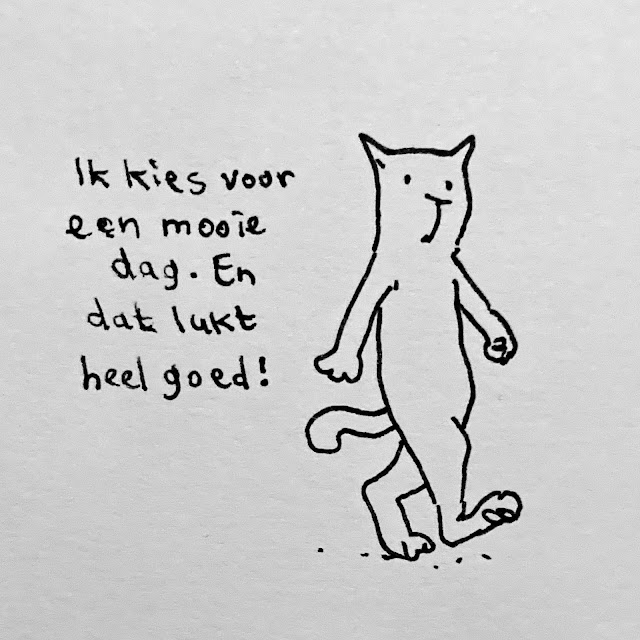 Ik kies voor
een mooie
dag. En
dat lukt
heel goed!